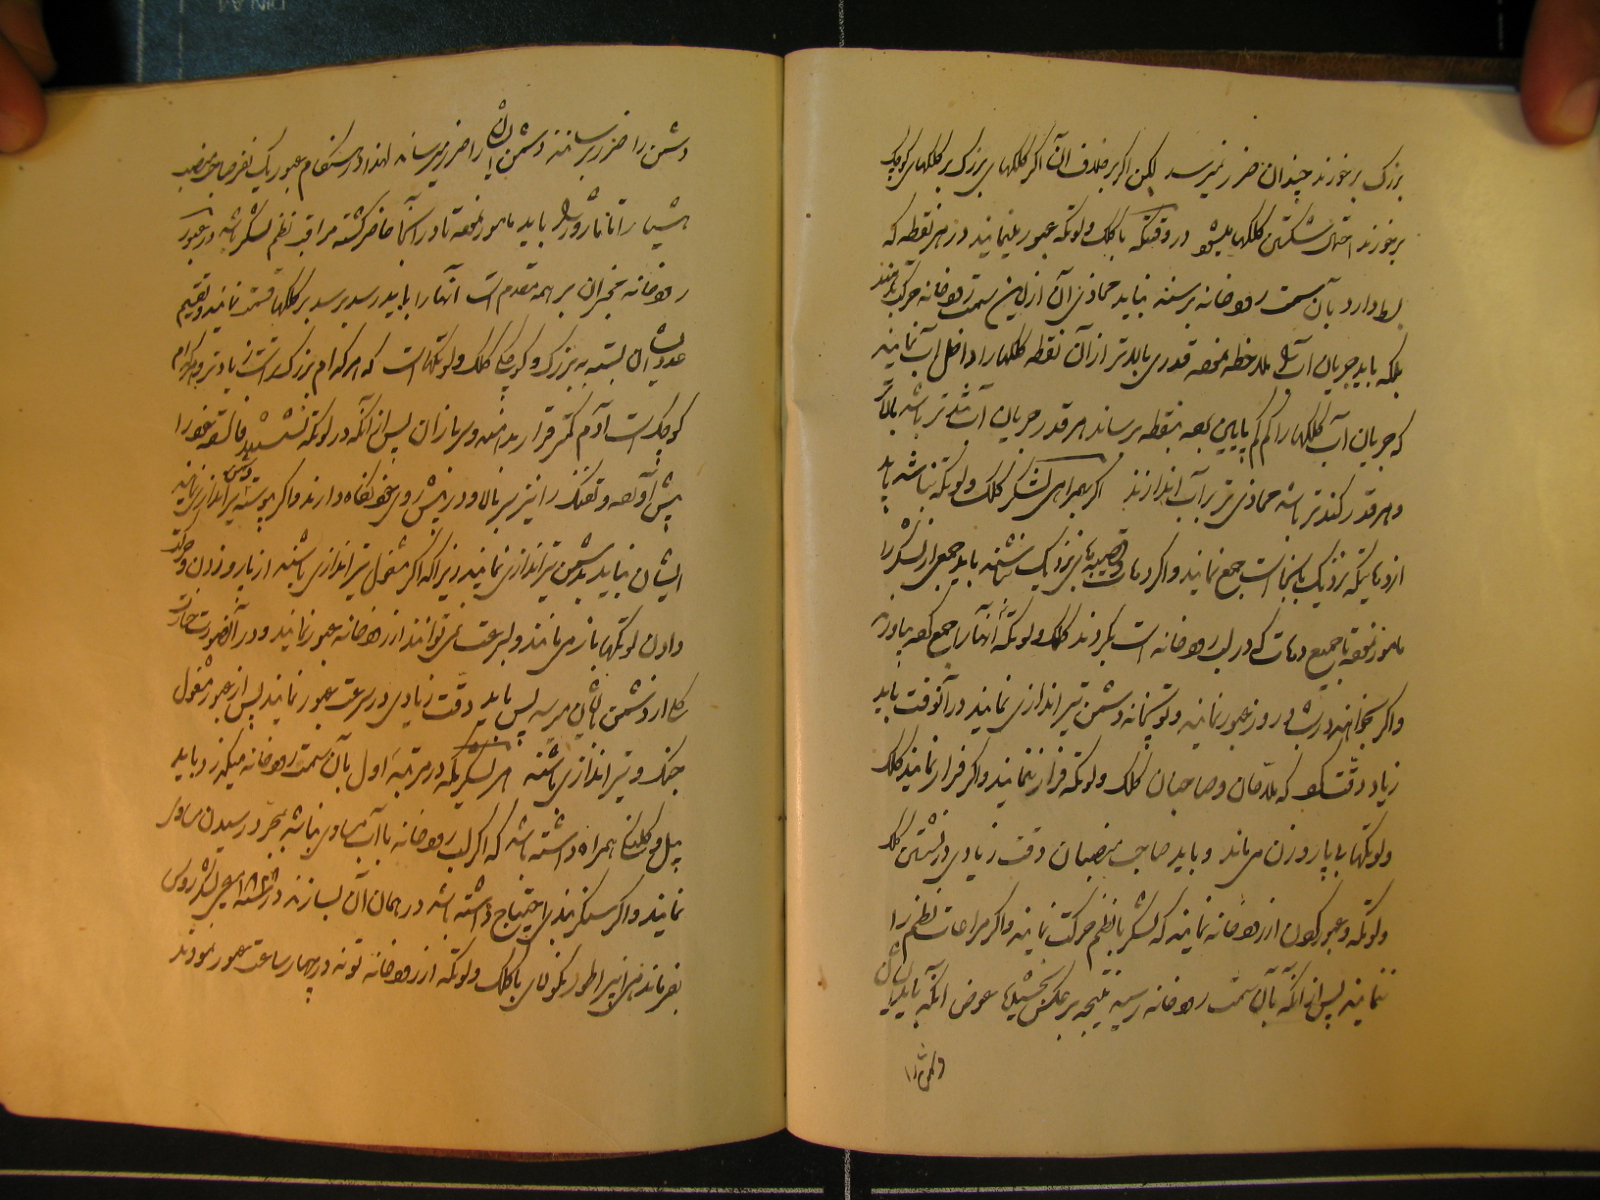 بزرگ برخورند چندان ضرر نمیرسد لکن اگر برخلاف آن اگر کلکهای بزرگ بر کلکهای کوچک
برخورند احتمال شکستن کلکها میشود در وقتیکه با کلک ولوتکه عبور مینمایند در هر نقطه که
دارد بآن سمت رودخانه برسند نباید محاذی آن ازاین سمت رودخانه حرکت نمایند
بلکه باید جریان آب را ملاحظه نموده قدری بالاتر از آن نقطه کلکها را داخل آب نمایند
که جریان آب کلکها را کم کم پایین بنقطه برساند هر قدر جریان آب تندتر باشد بالاتر
و هر قدر کندتر باشد محاذی تر برآب اندازند اگر همراه لشکر کلک ولوتکه نباشد باید
از دهاتیکه نزدیک بآنجا است جمع نمایند و اگر دهات وقصبه های نزدیک نباشند باید جمعی از لشکر را
مامور نموده با جمیع دهات که در لب رودخانه است بگردند کلک ولوتکه آنها را جمع کرده بیاورند
و اگر بخواهند در شب و روز عبور نمایند وتوپخانه دشمن تیراندازی نمایند در آنوقت باید
زیاد دقت کرد که ملاحان وصاحبان کلک ولوتکه فرار ننمایند واگر فرار نمایند کلک
ولوتکها بی پاروزن میماند وباید صاحب منصبان دقت زیادی در نشستن کلک
ولوتکه وعبور کردن از رودخانه نمایند که لشکر با نظم حرکت نمایند واگر مراعات نظم را
ننمایند پس از آنکه بآن سمت رودخانه رسیدند نتیجه برعکس بخشیده عوض آنکه باید ایشان
دشمن را
دشمن را ضرر برسانند دشمن ایشان را ضرر میرساند لهذا در هنگام عبور یک نفر صاحب منصب
هشیار را باید مامور نموده تا در آنجا حاضر گشته مراقب نظم لشکر باشد در عبور
رودخانه مخبران بر همه مقدم است آنها را باید رسد برسد بر کلکها قسمت نمایند وتقسیم
عدد ایشان بسته به بزرگ و کوچکی کلک ولوتکها است که هر کدام بزرگ است زیادتر وهر کدام
کوچک است آدم کمتر قرار بدهند وسربازان پس از آنکه در لوتکه نشستند خود را
پیش آورده وتفنگ را نیز سر بالا ودر پیش روی خود نگاه دارند واگر دشمن پیوسته تیراندازی نماید
ایشان نباید بدشمن تیراندازی نمایند زیرا که اگر مشغول تیراندازی باشند از پارو زدن وحرکت
دادن لوتکها باز میمانند وبسرعت نمیتوانند از رودخانه عبور نمایند ودر آنصورت خسارت
کلی از دشمن بایشان میرسد پس باید دقت زیادی در سرعت عبور نمایند پس از عبور مشغول
جنگ وتیراندازی باشند هر لشکریکه در مرتبه اول بآن سمت رودخانه میگذرد باید
بیل وکلنگ همراه داشته باشد که اگر لب رودخانه با آب مساوی نباشد بمجرد رسیدن مساوی
نمایند واگر سنگربندی احتیاج داشته باشد در همان آن بسازند در سنه ۱۸۲۸ عیسوی لشکر روس
بفرماندهی امپراطور نیکولای با کلک ولوتکه از رودخانه تونه در چهار ساعت عبور نمودند